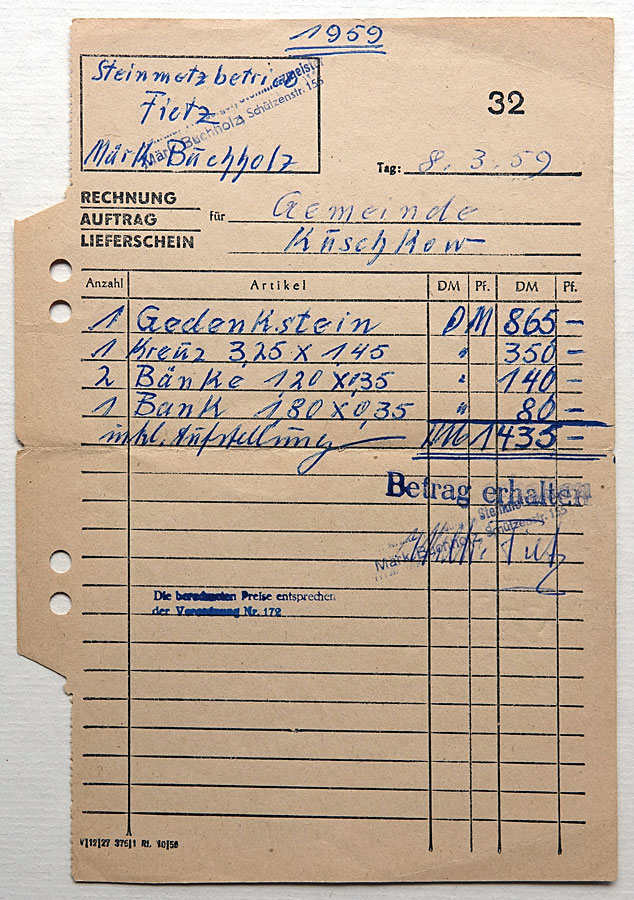 1959
Steinmetzbetrieb
Fietz
Märk. Buchholz
Märk. Buchholz, Schützenstr. 155
32
Tag: 8. 3. 59
RECHNUNG
AUFTRAG
LIEFERSCHEIN
für Gemeinde
Kuschkow
Anzahl Artikel DM Pf. DM Pf.
1 Gedenkstein DM 865 –
1 Kreuz 3,25 x 145 " 350 –
2 Bänke 1,20 x 0,35 " 140 –
1 Bank 1,80 x 0,35 " 80 –
inkl. Aufstellung DM 1435 –
Betrag erhalten
Märk. Buchholz, Schützenstr. 155
Die berechneten Preise entsprechen
der Verordnung Nr. 172